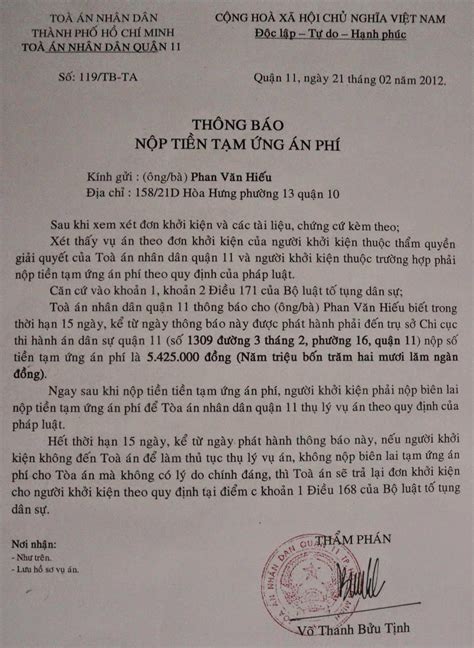 TOÀ ÁN NHÂN DÂN
THÀNH PHỐ HỒ CHÍ MINH
TOÀ ÁN NHÂN DÂN QUẬN 11
CỘNG HOÀ XÃ HỘI CHỦ NGHĨA VIỆT NAM
Độc lập – Tự do – Hạnh phúc
Số: 119/TB-TA
Quận 11, ngày 21 tháng 02 năm 2012.
THÔNG BÁO
NỘP TIỀN TẠM ỨNG ÁN PHÍ
Kính gửi : (ông/bà) Phan Văn Hiếu
Địa chỉ : 158/21D Hòa Hưng phường 13 quận 10
Sau khi xem xét đơn khởi kiện và các tài liệu, chứng cứ kèm theo;
Xét thấy vụ án theo đơn khởi kiện của người khởi kiện thuộc thẩm quyền
giải quyết của Toà án nhân dân quận 11 và người khởi kiện thuộc trường hợp phải
nộp tiền tạm ứng án phí theo quy định của pháp luật.
Căn cứ vào khoản 1, khoản 2 Điều 171 của Bộ luật tố tụng dân sự;
Toà án nhân dân quận 11 thông báo cho (ông/bà) Phan Văn Hiếu biết trong
thời hạn 15 ngày, kể từ ngày thông báo này được phát hành phải đến trụ sở Chi cục
thi hành án dân sự quận 11 (số 1309 đường 3 tháng 2, phường 16, quận 11) nộp số
tiền tạm ứng án phí là 5.425.000 đồng (Năm triệu bốn trăm hai mươi lăm ngàn
đồng).
Ngay sau khi nộp tiền tiền tạm ứng án phí, người khởi kiện phải nộp biên lai
nộp tiền tạm ứng án phí để Tòa án nhân dân quận 11 thụ lý vụ án theo quy định của
pháp luật.
Hết thời hạn 15 ngày, kể từ ngày phát hành thông báo này, nếu người khởi
kiện không đến Toà án để làm thủ tục thụ lý vụ án, không nộp biên lai tạm ứng án
phí cho Tòa án mà không có lý do chính đáng, thì Toà án sẽ trả lại đơn khởi kiện
cho người khởi kiện theo quy định tại điểm c khoản 1 Điều 168 của Bộ luật tố tụng
dân sự.
Nơi nhận:
- Như trên.
- Lưu hồ sơ vụ án.
THẨM PHÁN
TOÀ ÁN NHÂN DÂN QUẬN 11 TP
Võ Thanh Bửu Tịnh